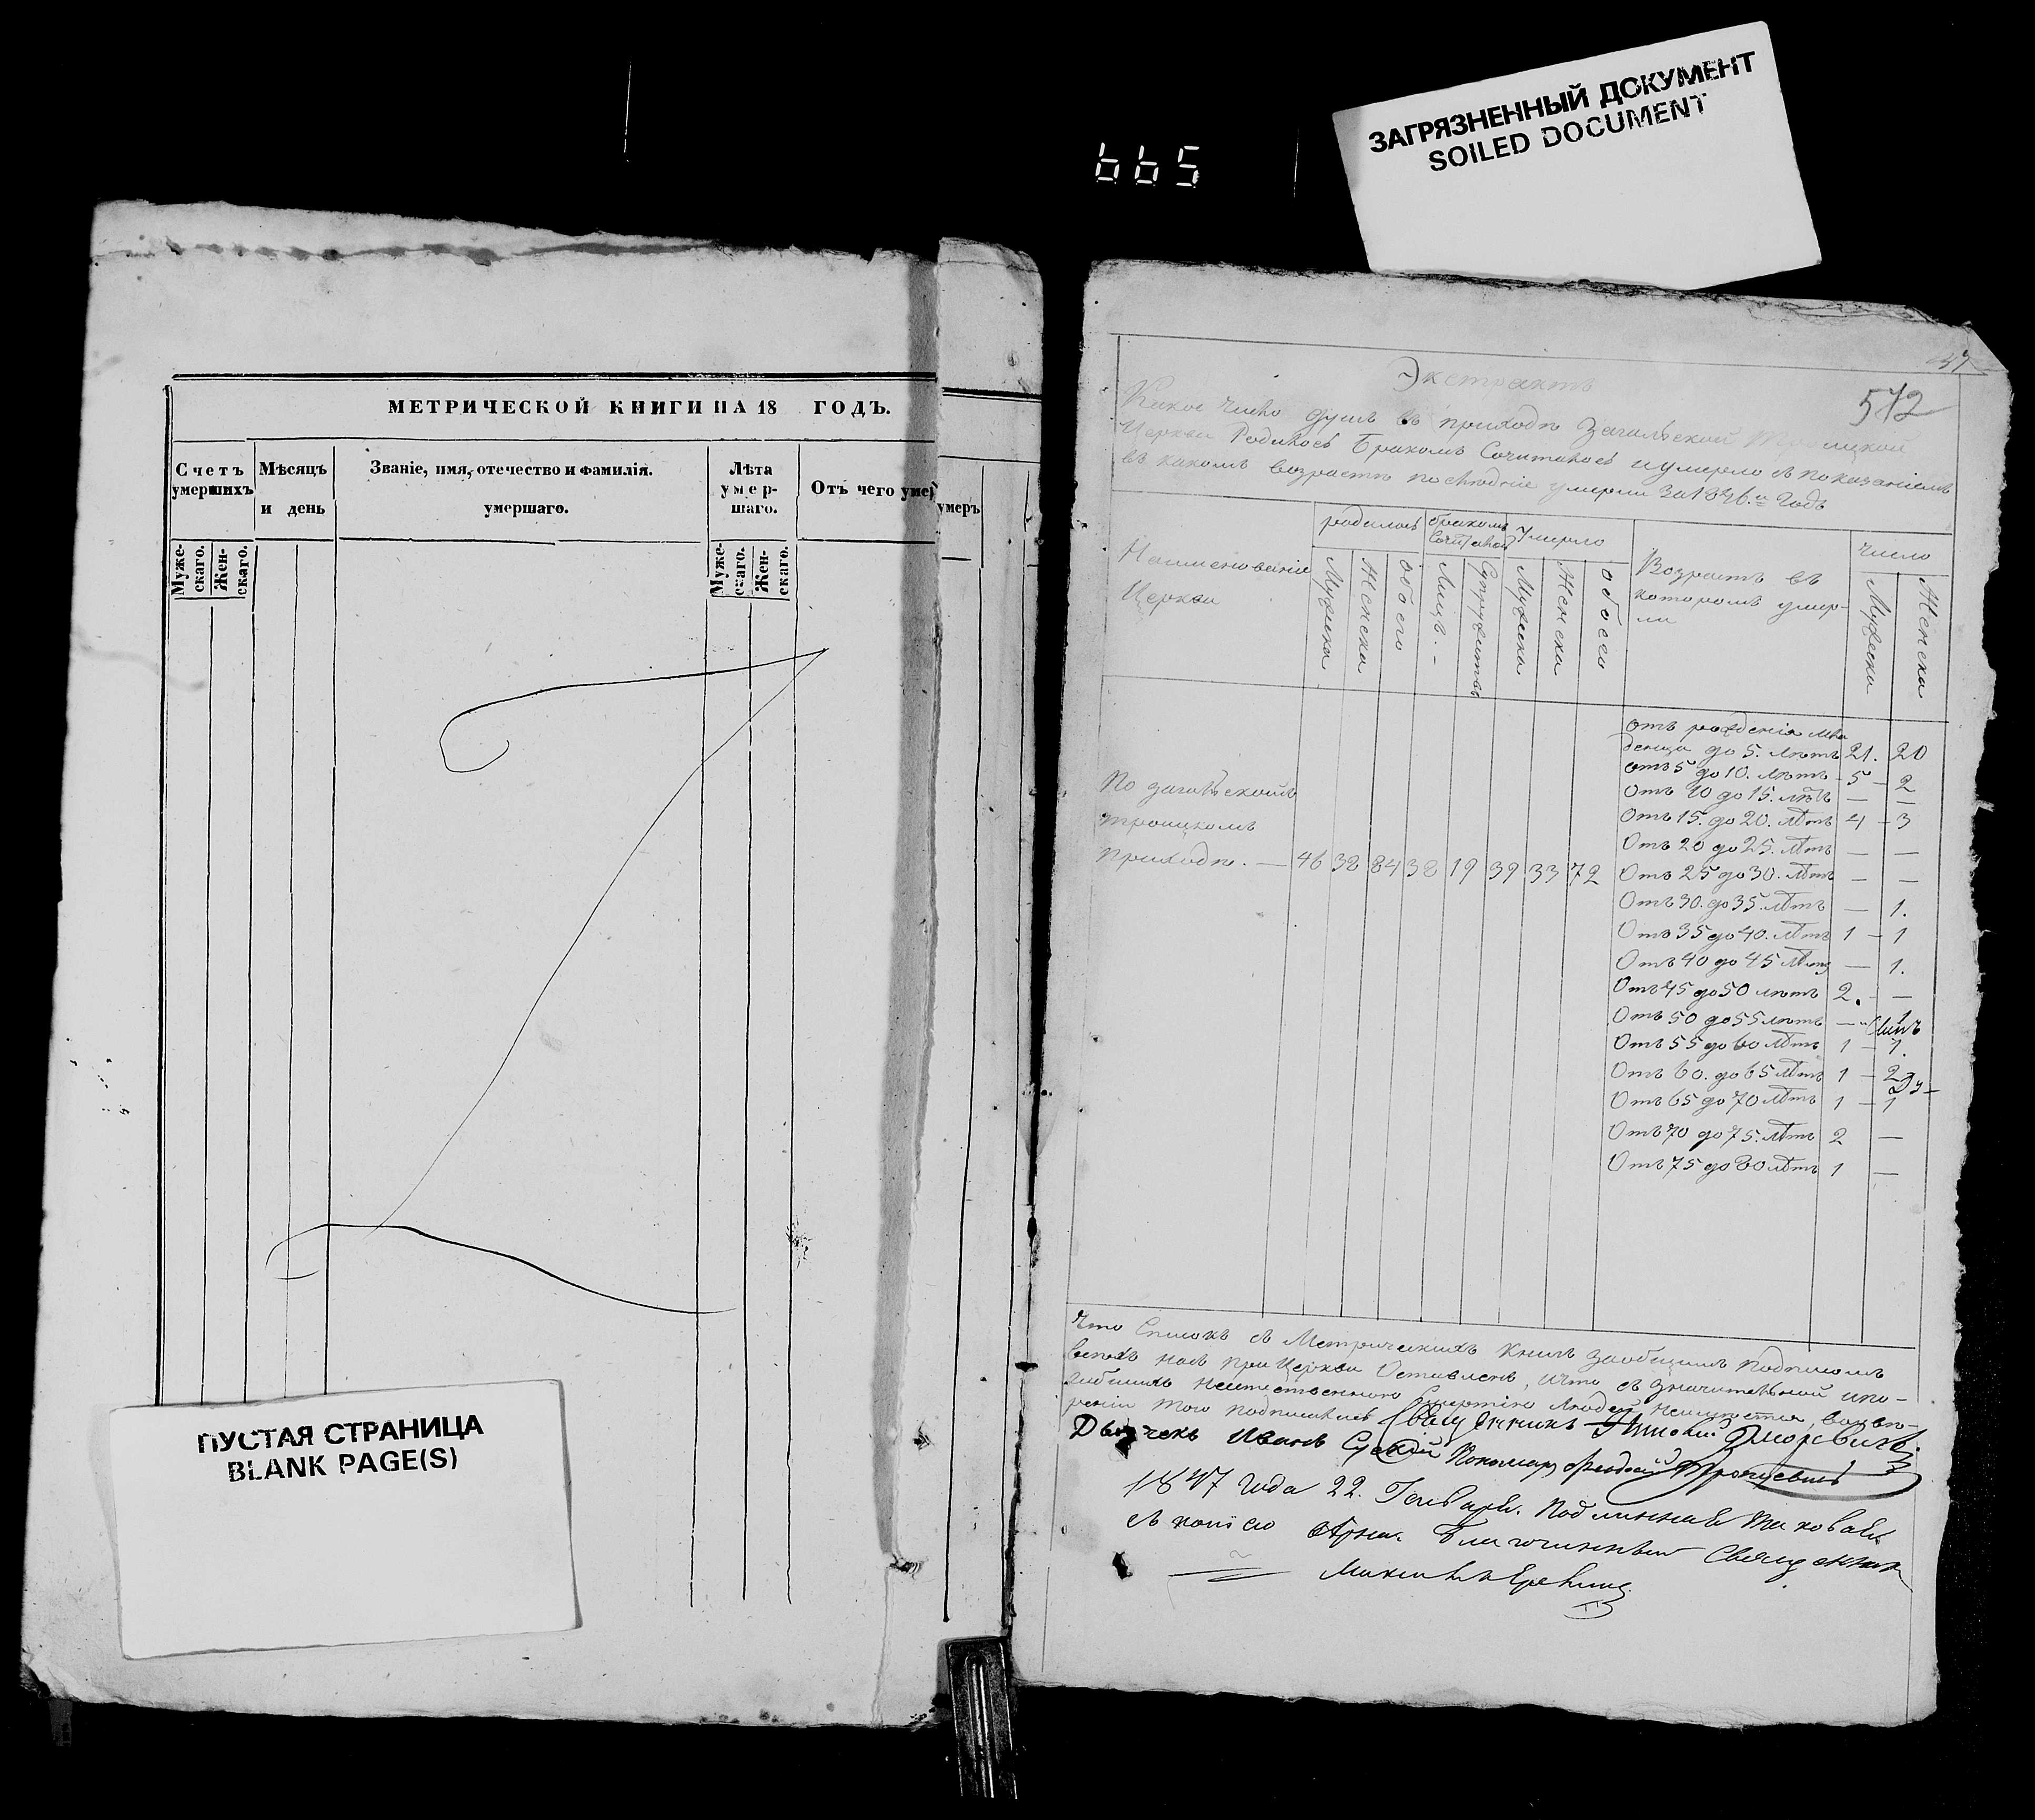 ЗАГРЯЗНЕННЫЙ ДОКУМЕНТ
SOILED DOCUMENT
665
МЕТРИЧЕСКОЙ КНИГИ НА 18 ГОДЪ.
Счетъ умершихъ
Мѣсяцъ и день
Званіе, имя, отечество и фамилія.
умершаго.
Лѣта умер-шаго.
Отъ чего умер
Муже-скаго.
Жен-скаго.
Муже-скаго.
Жен-скаго.
умеръ
ПУСТАЯ СТРАНИЦА
BLANK PAGE(S)
37
572
Экстрактъ
Какое число душъ въ приходѣ Загальской
Церкви Родилось Бракомъ Сочиталось и умерло съ показаніемъ
въ какомъ возрастѣ послѣдніе умерли за 1846.й Годъ
Наименованіе Церкви
родилось
бракомъ
Умерло
Возрастъ въ
которомъ умер-
ли
Число
Мужеска
Женска
обоего
Лицъ. -
Супружествъ
Мужеска
Женска
обоего
Мужеска
Женска
По загальскомъ
троицкомъ
приходѣ. — 46 38 84 38 19 39 33 72
отъ рожденія мла
денца до 5. лѣтъ 21. 20
отъ 5 до 10. лѣтъ - 5 - 2
Отъ 10 до 15. лѣтъ — —
Отъ 15. до 20. лѣтъ 4 - 3
Отъ 20 до 25. лѣтъ — —
Отъ 25 до 30. лѣтъ — —
Отъ 30. до 35. лѣтъ — 1.
Отъ 35 до 40. лѣтъ 1 - 1
Отъ 40 до 45 лѣтъ — 1.
Отъ 45 до 50 лѣтъ 2. —
Отъ 50 до 55 лѣтъ — 1
Отъ 55 до 60 лѣтъ 1 - 1.
Отъ 60. до 65 лѣтъ 1 - 2
Отъ 65 до 70 лѣтъ 1 - 1
Отъ 70 до 75. лѣтъ 2 —
Отъ 75 до 80 лѣтъ 1 —
Что Списокъ съ Метрическихъ Книгъ заобщимъ подписомъ
всѣхъ насъ при Церкви Оставленъ, и что съ значительной
неестественною Смертію людей неимѣется, во
реніи того подписались Священникъ
Дьячекъ Иванъ Пономарь
1847 года 22. Генваря. Подлинная таковая
съ копіею вѣрна. Благочинный Священникъ